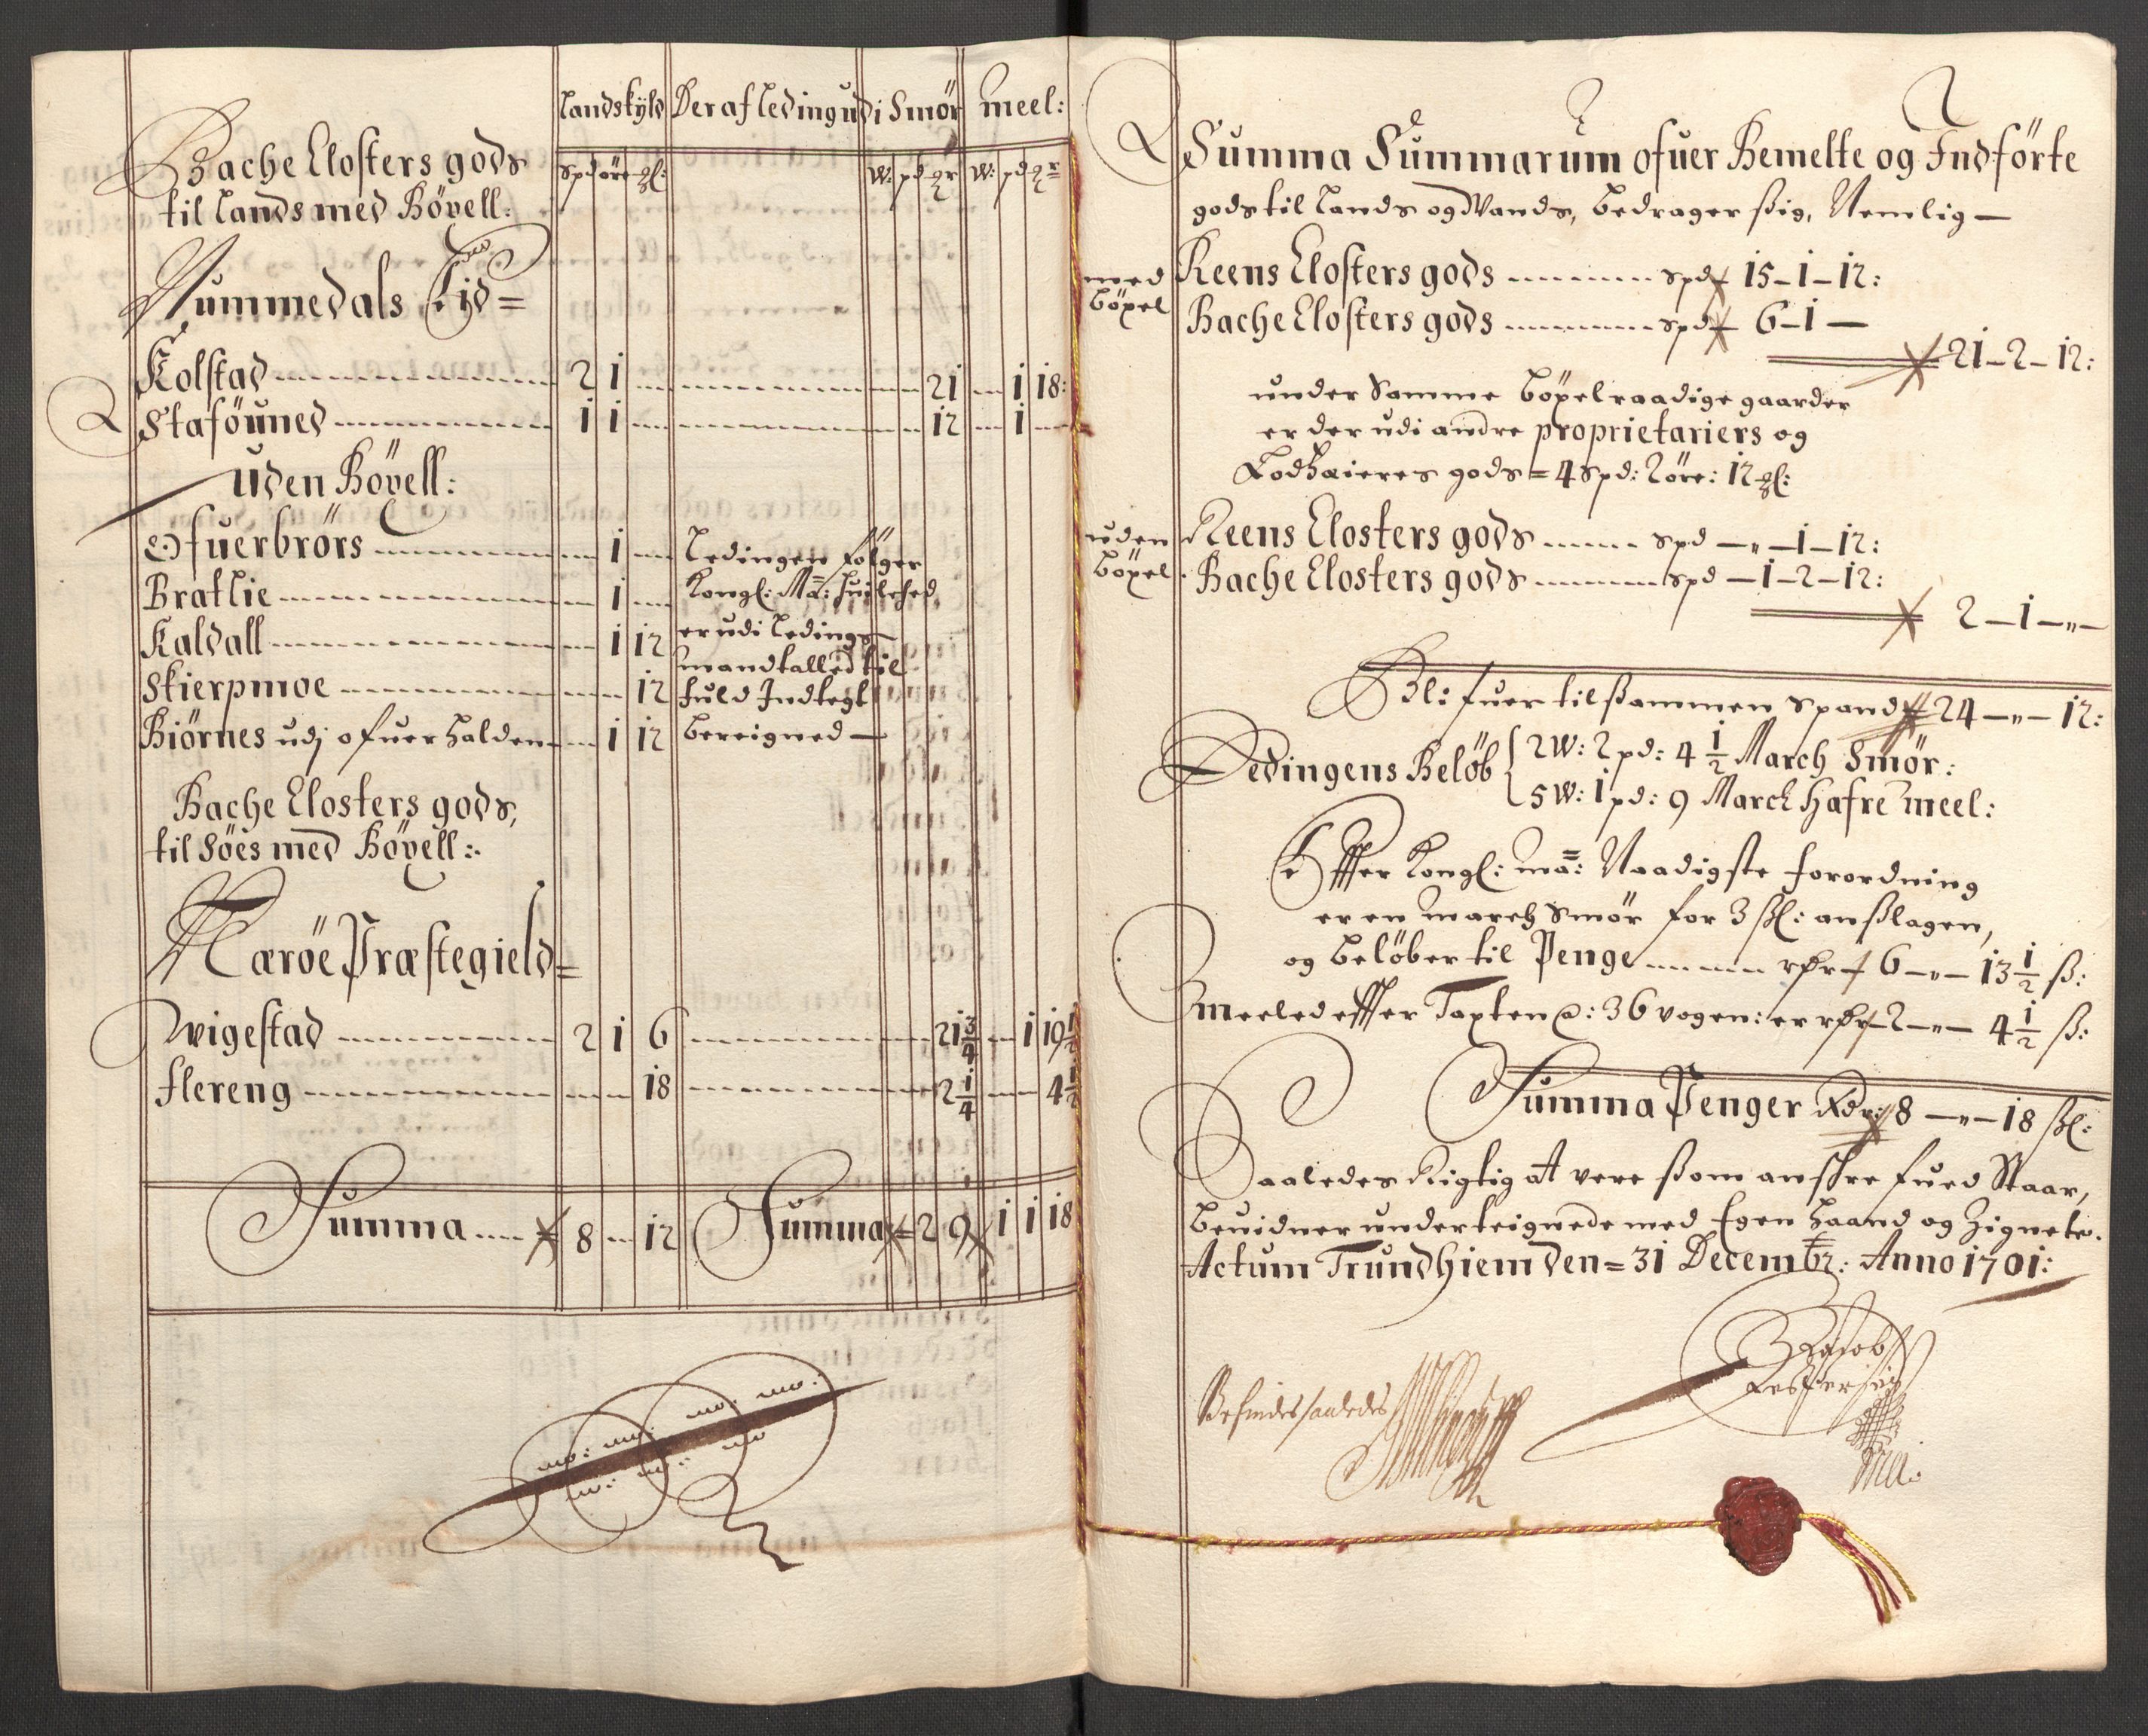 Landskyld Deraf Leding udi Smör meel:
Bache Closters gods
spd öre gl: W: pd qr W: pd qr
til Lands med Böxell:
Nummedals Eid=
Kolstad 2 1 21 1 18:
Staföuned 1 1 12 1
uden Böxell:
Ofuerbrörs 1 Ledingen fölger
Bratlie 1 Kongl: Ma:
Kaldall 1 12 er udi Ledings
Skierpmoe 12 mandtalled til fuld Indtegt
Biörnes udj ofuerhalden 1 12 bereigned
Bache Closters gods,
til Söes med Böxell:
Næröe Præstegield=
Wigestad 2 1 6 21 3/4 1 19 1/2
flereng 18 2 1/4 4 1/2
Summa 8 12 Summa 2 9 1 1 18
Summa Summarum ofuer Bemelte og Indförte
gods til Lands og Wands, bedrager ßig, Nemlig
med Böxel
Reens Closters gods spd 15-1-12:
Bache Closters gods spd 6-1-
21-2-12:
under Samme böxelraadige gaarder
er der udi andre proprietariers og
Lodhaieres gods = 4 Spd: 2 öre: 12 gl:
uden Böxel
Reens Closters gods spd -„-1-12:
Bache Closters gods spd -1-2-12:
2-1-„-
Blifuer tilßammen Spand 24-„-12:
Ledingens Belöb 2 W: 2 pd: 4 1/2 March Smör:
5 W: 1 pd: 9 March Hafre meel:
Effter Kongl: Ma: Naadigste forordning
er en march Smör for 3 ßl: anßlagen,
og belöber til Penge rdr 6-„-13 1/2 ß:
Meeled effter Taxten a: 36 vogen: er rdr 2-„-4 1/2 ß:
Summa Penger Rdr: 8-„-18 ßl:
Saaledes Rigtig at vere ßom anskrefued Staar,
bevidner underteignede med Egen haand og Zignete.
Actum Trundhiem den = 31 Decembr: Anno 1701:
Befindes saaledes
Jacob
Jespersen